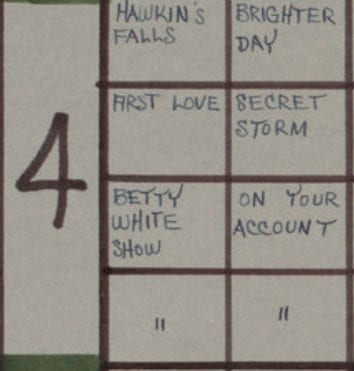 HAWKIN'S
FALLS
BRIGHTER
DAY
4
FIRST LOVE
SECRET
STORM
BETTY
WHITE
SHOW
ON YOUR
ACCOUNT
"
"